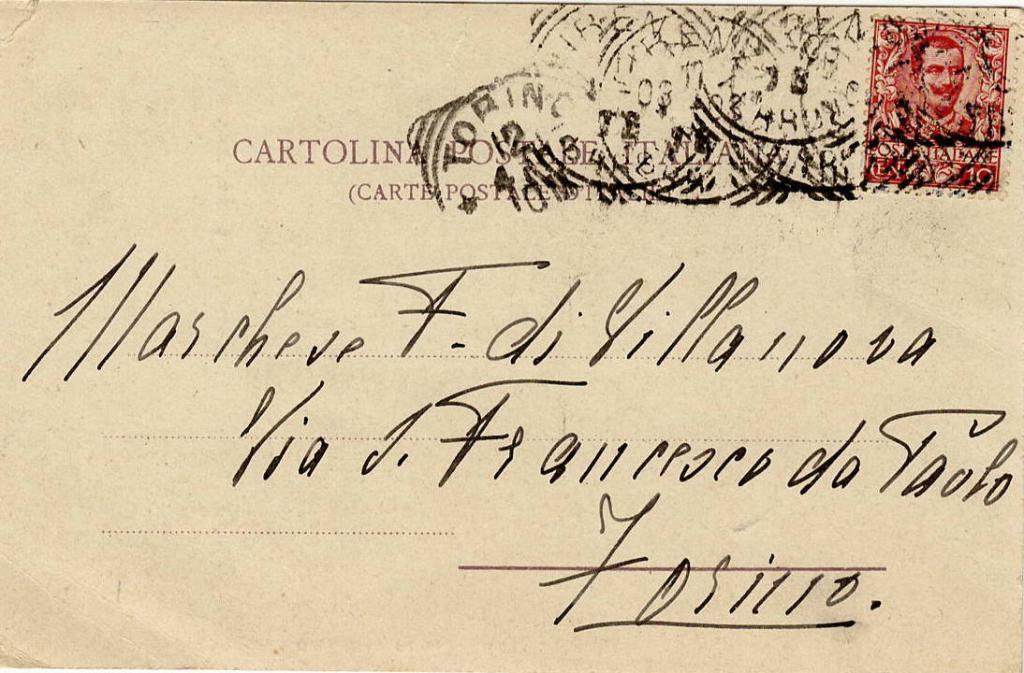 CARTOLINA POSTALE ITALIANA
(CARTE POSTALE D'ITALIE)
TORINO
POSTE ITALIANE
CENT. 10
Marchese F. di Villanova
Via S. Francesco da Paolo
Torino.